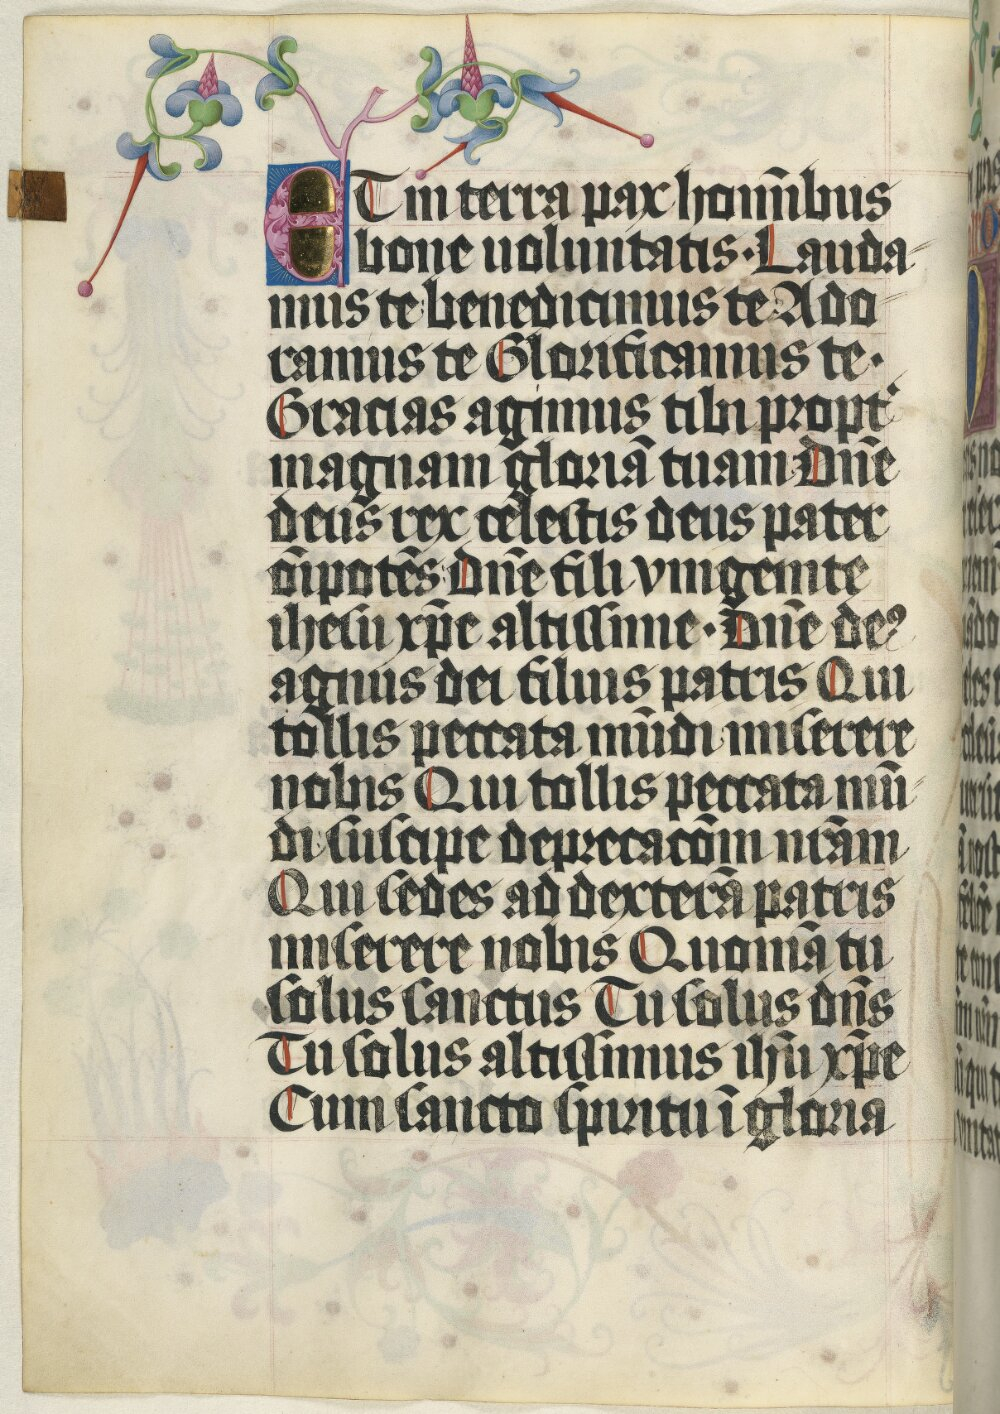 ET in terra pax homĩbus
bone uoluntatis· Lauda-
mus te benedicimus te Ado-
ramus te Glorificamus te·
Gracias agimus tibi propt̉
magnam gloriã tuam Dñe
deus rex celestis deus pater
oĩpotẽs Dñe fili vnigenite
ihesu xp̃e altissime· Dñe deꝰ
agnus dei filius patris Qui
tollis peccata mũdi miserere
nobis Qui tollis peccata mũ-
di suscipe deprecacõm nrãm
Qui sedes ad dexterã patris
miserere nobis Quoniã tu
solus sanctus Tu solus dñs
Tu solus altissimus ihũ xp̃e
Cum sancto spiritu ĩ gloria